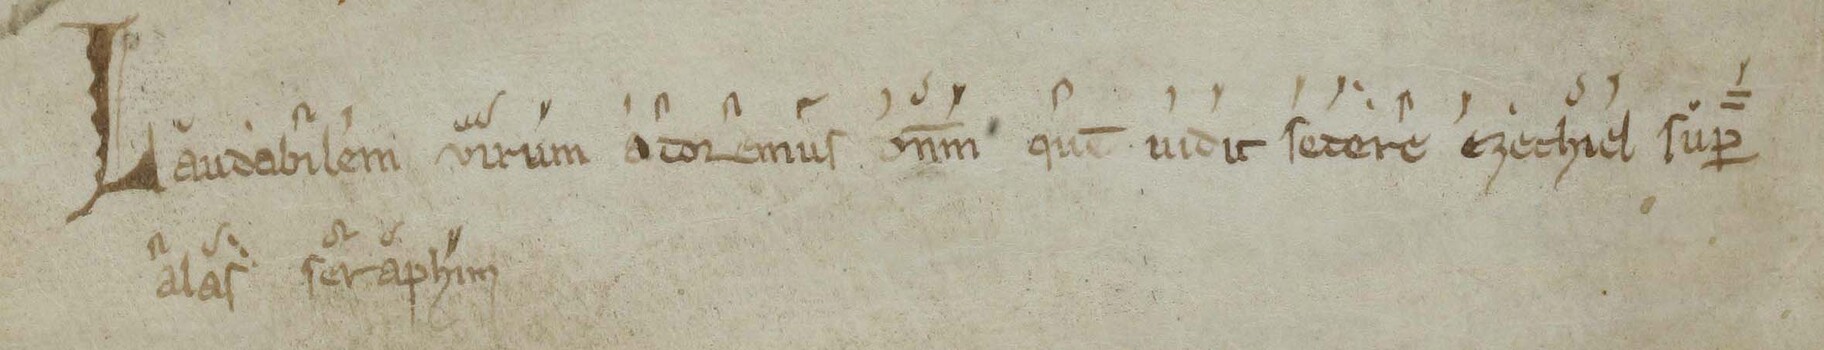 Laudabilem virum adoremus dn̄m quē uidit sedere ezechiel sup̱
alas seraphim